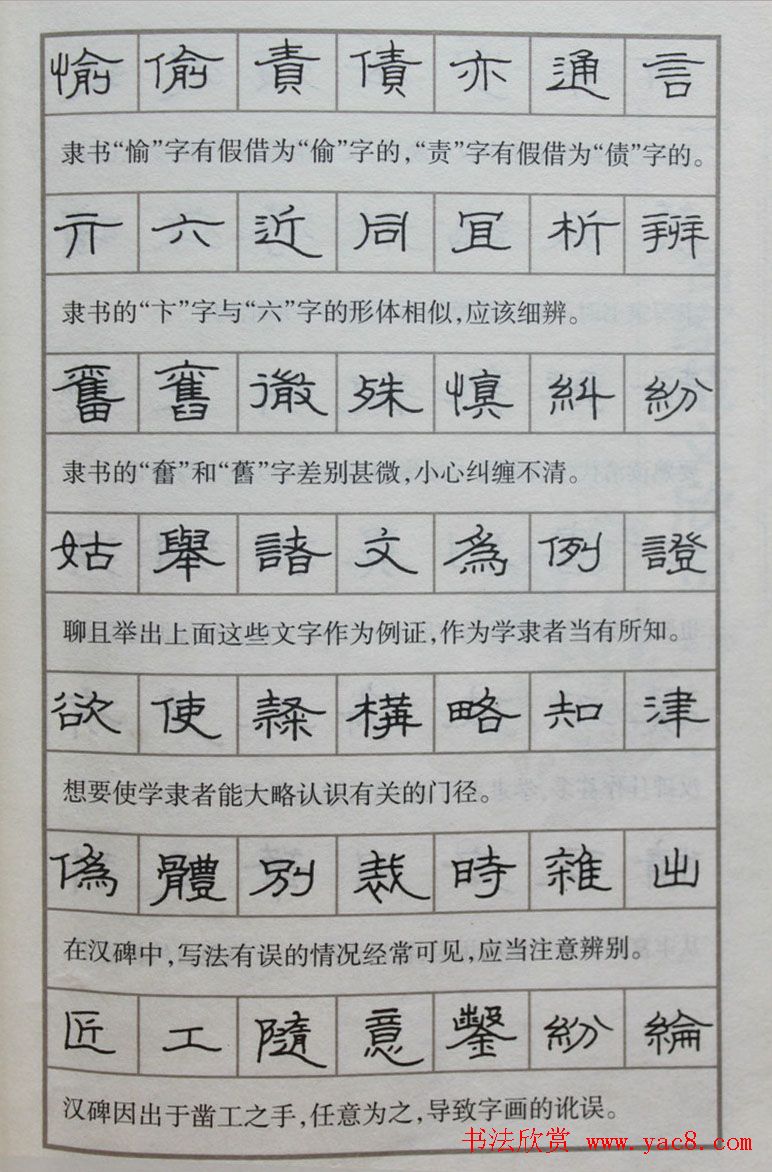 愉偷責債亦通言
隶书“愉”字有假借为“偷”字的,“责”字有假借为“债”字的。
卞六近同冝析辨
隶书的“卞”字与“六”字的形体相似,应该细辨。
奮舊微殊慎糾紛
隶书的“奮”和“舊”字差别甚微,小心纠缠不清。
姑舉諸文為例證
聊且举出上面这些文字作为例证,作为学隶者当有所知。
欲使隸構略知津
想要使学隶者能大略认识有关的门径。
偽體別裁時雜出
在汉碑中,写法有误的情况经常可见,应当注意辨别。
匠工隨意鑿紛綸
汉碑因出于凿工之手,任意为之,导致字画的讹误。
书法欣赏 www.yac8.com